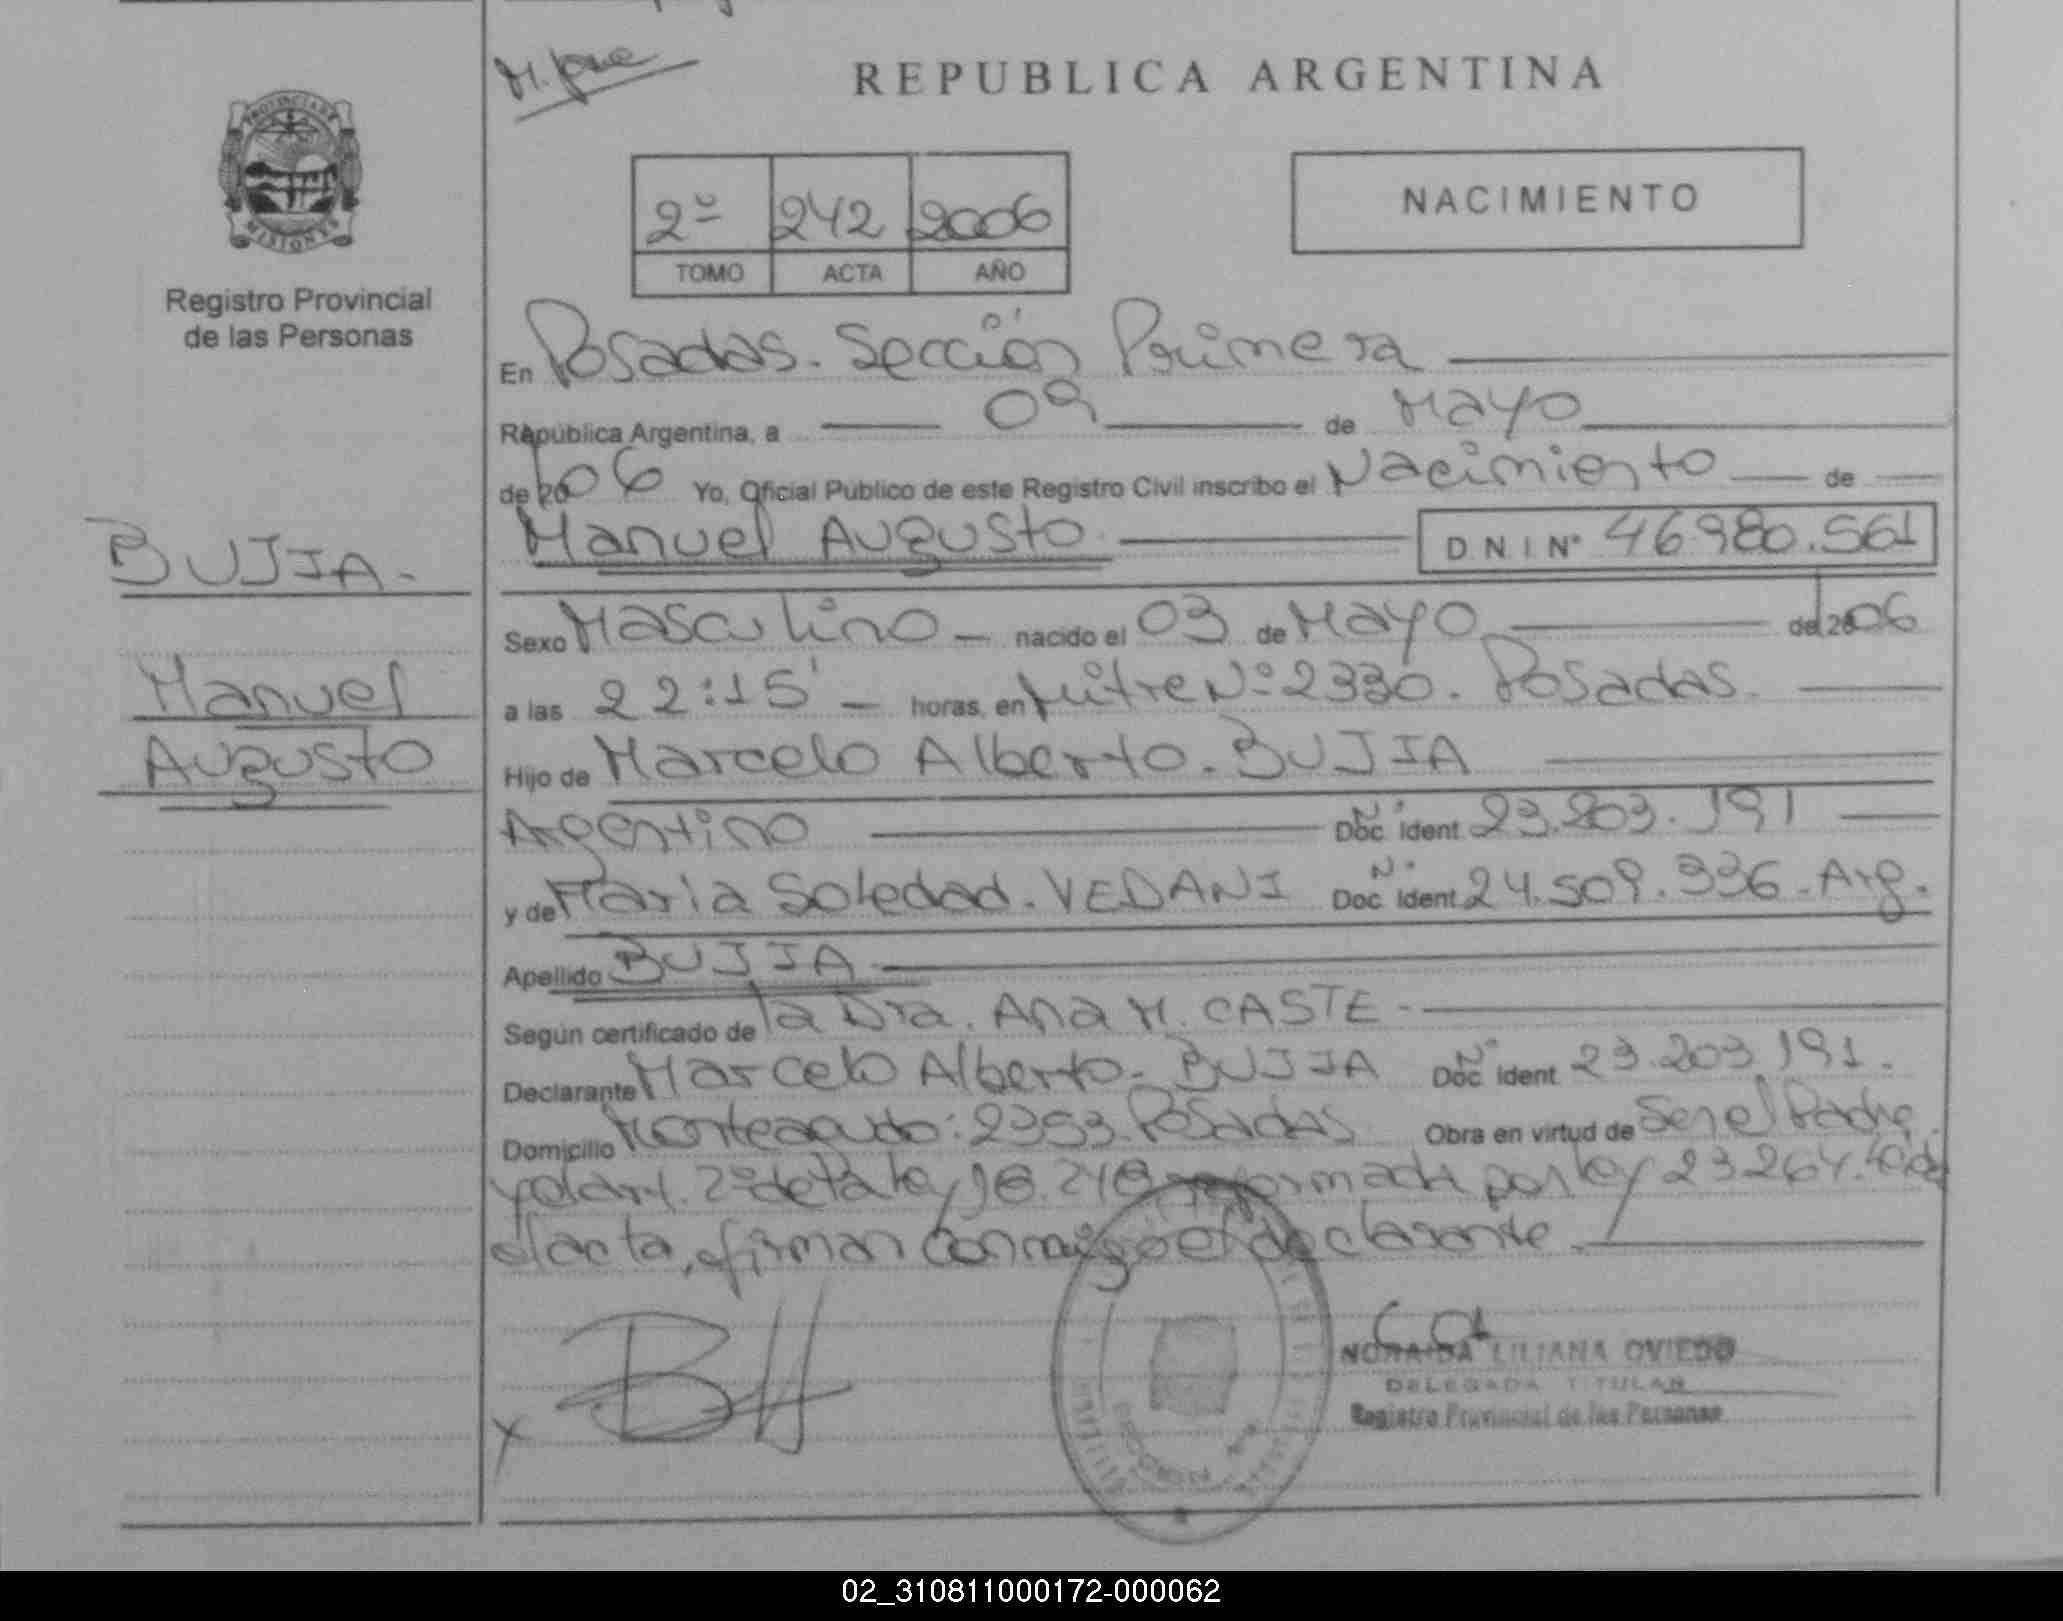 M. José
REPUBLICA ARGENTINA
PROVINCIA DE
MISIONES
Registro Provincial
de las Personas
2º 242 2006
TOMO ACTA AÑO
NACIMIENTO
En Posadas. Sección Primera
República Argentina, a 09 de Mayo
de 2006 Yo, Oficial Público de este Registro Civil inscribo el Nacimiento de
Manuel Augusto D N I Nº 46.980.561
BUJIA.-
Manuel
Augusto
Sexo Masculino nacido el 03 de Mayo de 2006
a las 22:15' horas, en Mitre Nº 2330. Posadas.
Hijo de Marcelo Alberto. BUJIA
Argentino Nº Doc. ident 23.203.191
y de Maria Soledad. VEDANI Nº Doc. ident 24.509.336.-Arg.
Apellido BUJIA
Según certificado de la Dra. Ana M. CASTE.-
Declarante Marcelo Alberto. BUJIA Nº Doc. ident 23.203.191.
Domicilio Monteagudo: 2353. Posadas Obra en virtud de Ser el Padre
y el art. 2º de la ley 18.248 reformada por ley 23.264. Leida
el acta, firman conmigo el declarante.
NORAIDA LILIANA OVIEDO
DELEGADA TITULAR
Registro Provincial de las Personas
02_310811000172-000062